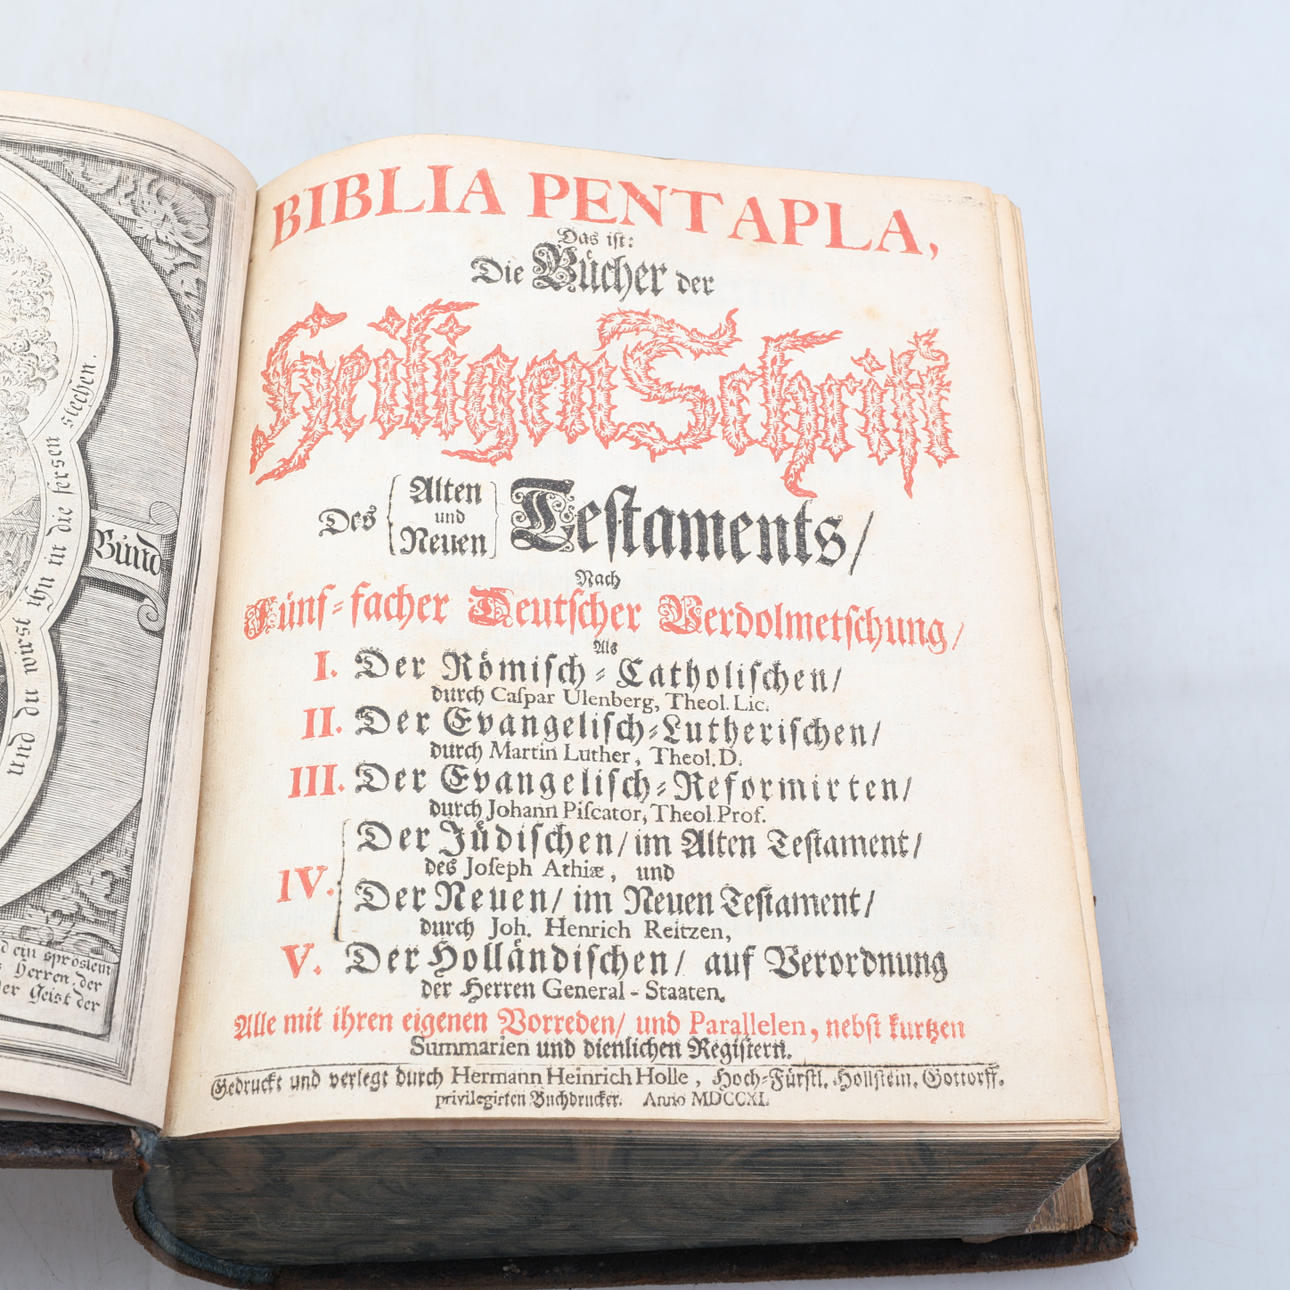 und du wirst ihn in die fersen stechen.
Bund
d ein sprößlein
s Herren, der
er Geist der
BIBLIA PENTAPLA,
Das ist:
Die Bücher der
Heiligen Schrift
Des Alten und Neuen Testaments/
Nach
Fünf-facher Deutscher Verdolmetschung/
Als
I. Der Römisch-Catholischen/
durch Caspar Ulenberg, Theol. Lic.
II. Der Evangelisch-Lutherischen/
durch Martin Luther, Theol. D.
III. Der Evangelisch-Reformirten/
durch Johann Piscator, Theol. Prof.
IV. Der Jüdischen/ im Alten Testament/
des Joseph Athiæ, und
Der Neuen/ im Neuen Testament/
durch Joh. Henrich Reitzen,
V. Der Holländischen/ auf Verordnung
der Herren General-Staaten.
Alle mit ihren eigenen Vorreden/ und Parallelen, nebst kurtzen
Summarien und dienlichen Registern.
Gedruckt und verlegt durch Hermann Heinrich Holle, Hoch-Fürstl. Hollstein. Gottorff.
privilegirten Buchdrucker. Anno MDCCXI.